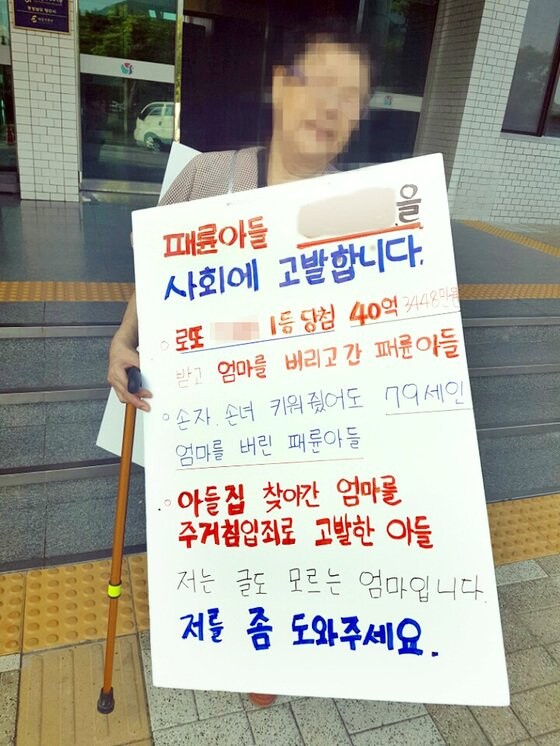 패륜아들 을
사회에 고발합니다.
로또 1등 당첨 40억 3448만원
받고 엄마를 버리고간 패륜아들
손자. 손녀 키워줬어도 79세인
엄마를 버린 패륜아들
아들집 찾아간 엄마를
주거침입죄로 고발한 아들
저는 글도 모르는 엄마입니다.
저를 좀 도와주세요.